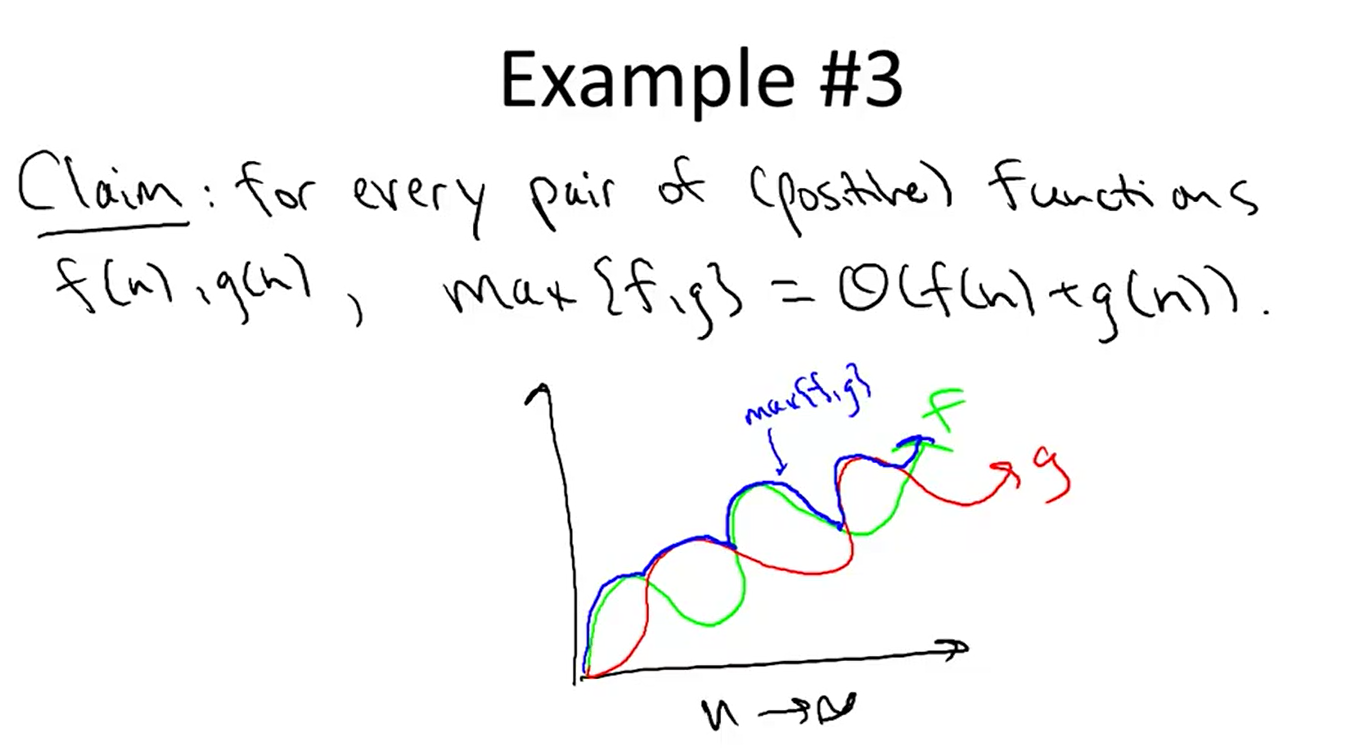 Example #3
Claim: for every pair of (positive) functions
f(n), g(n), max{f,g} = Θ(f(n)+g(n)).
max{f,g}
f
g
n → ∞